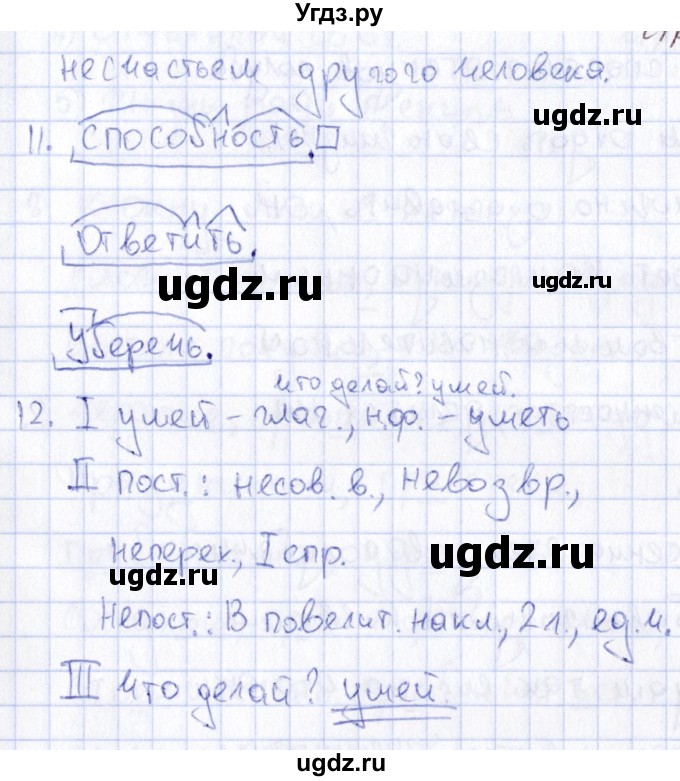 Угдз.ру
несчастьем другого человека.
11. способность.
Ответить.
уберечь.
что делай? умей.
12. I умей - глаг., н.ф. - уметь
II пост.: несов. в., невозвр.,
неперех., I спр.
Непост.: В повелит. накл., 2 л., ед. ч.
III что делай? умей
ugdz.ru
ugdz.ru
ugdz.ru
ugdz.ru
ugdz.ru
ugdz.ru
ugdz.ru
ugdz.ru